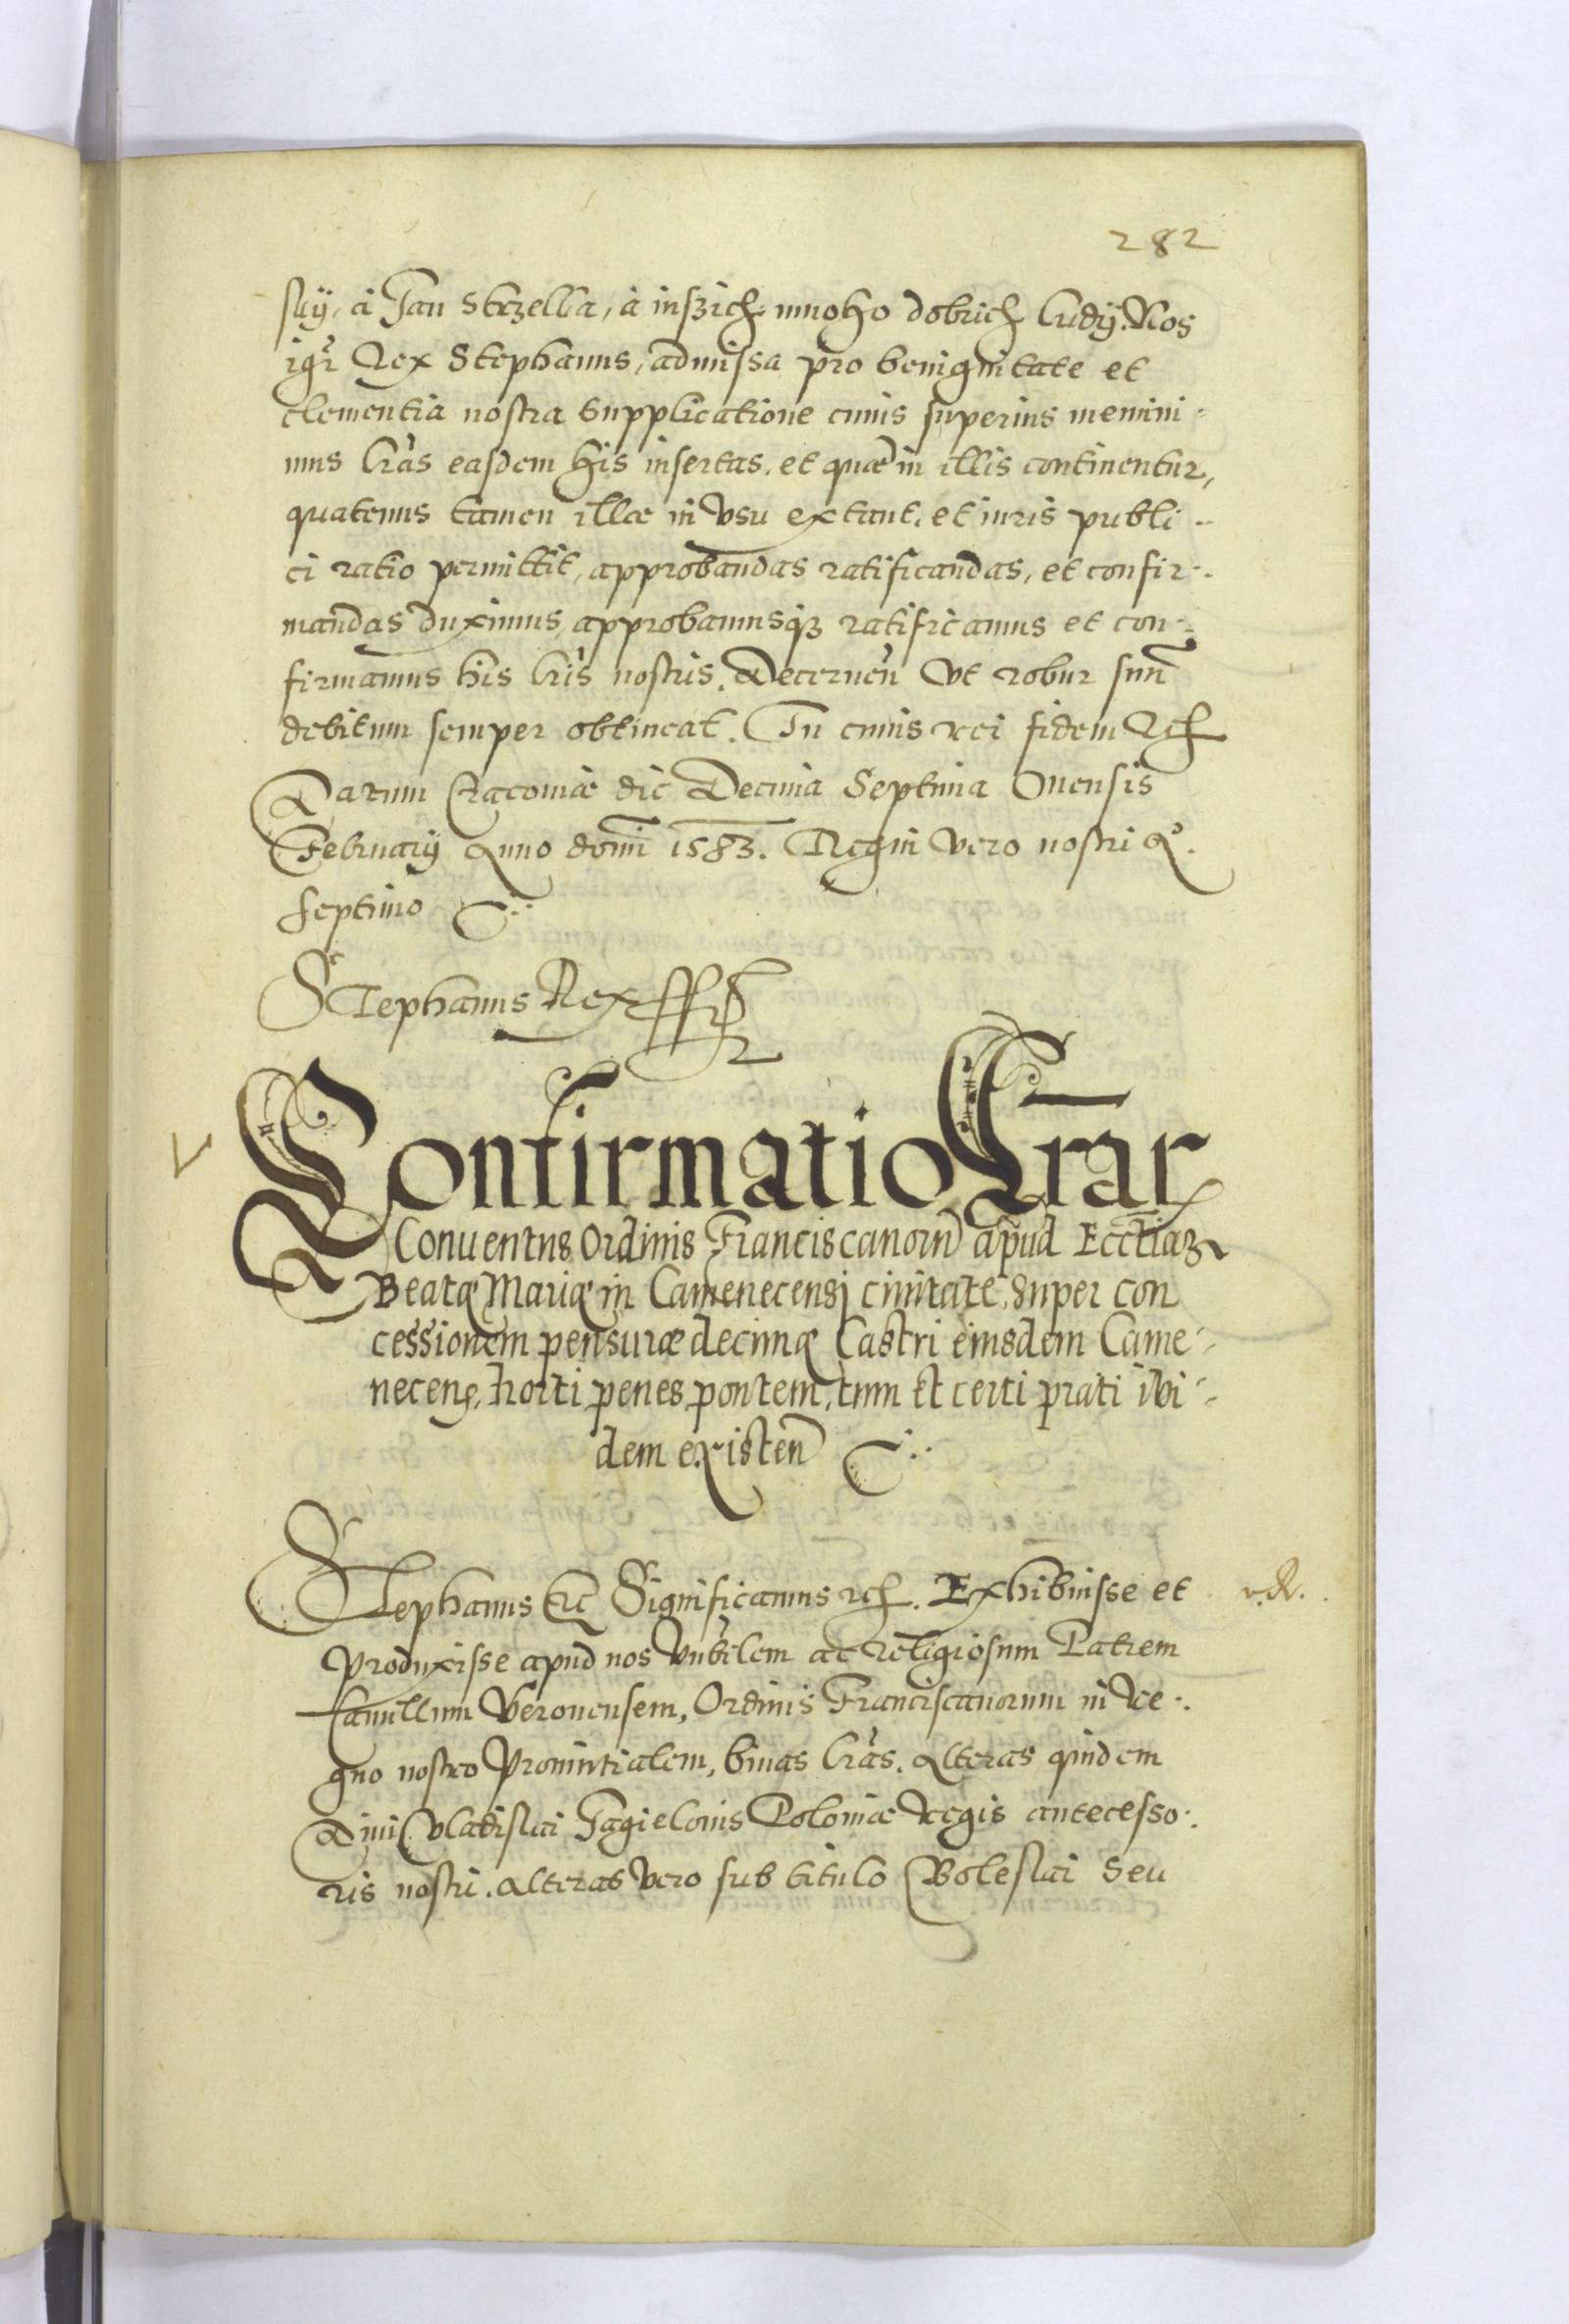 282
sky, a Jan Strzella, a inszich mnoho dobrich ludÿ. Nos
igr̃ Rex Stephanus, admissa pro benignitate et
clementia nostra supplicatione cuius superius memini-
mus lr̃as easdem his insertas, et quæ in illis continentur,
quatenus tamen illæ in vsu extant, et iuris publi-
ci ratio permittit, approbandas ratificandas, et confir-
mandas duximus, approbamusqȝ ratificamus et con-
firmamus his lr̃is nostris. Decernen̄ vt robur suu̅
debitum semper obtineat. In cuius rei fidem Rc̃
Datum Cracoviæ die Decima Septima Mensis
Februarÿ Anno domī 1583. Regni vero nostri Aº.
septimo
Stephanus Rex ss̃t
Confirmatio Lr̃ar
Conuentus Ordinis Franciscanoru̅ apud Eccl̃iaȝ
Beatæ Mariæ in Camenecensi ciuitate, super con
cessionem pensuræ decimæ Castri eiusdem Came-
necens, horti penes pontem, tum et certi prati ibi-
dem existen̄
Stephanus Etc̃ Significamus rc̃. Exhibuisse et
v.R.
produxisse apud nos Vn̄bilem ac religiosum Patrem
Camillum Veronensem, Ordinis Franciscanorum in Re-
gno nostro Prouintialem, binas lr̃as. Alteras quidem
Diui Vladislai Jagielonis Poloniæ Regis antecesso-
ris nostri. Alteras vero sub titulo Boleslai seu